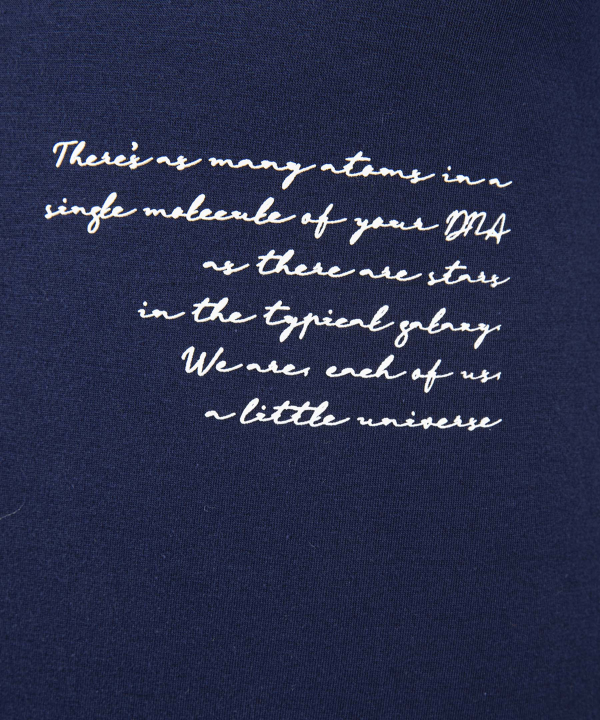 There's as many atoms in a
single molecule of your DNA
as there are stars
in the typical galaxy.
We are, each of us,
a little universe